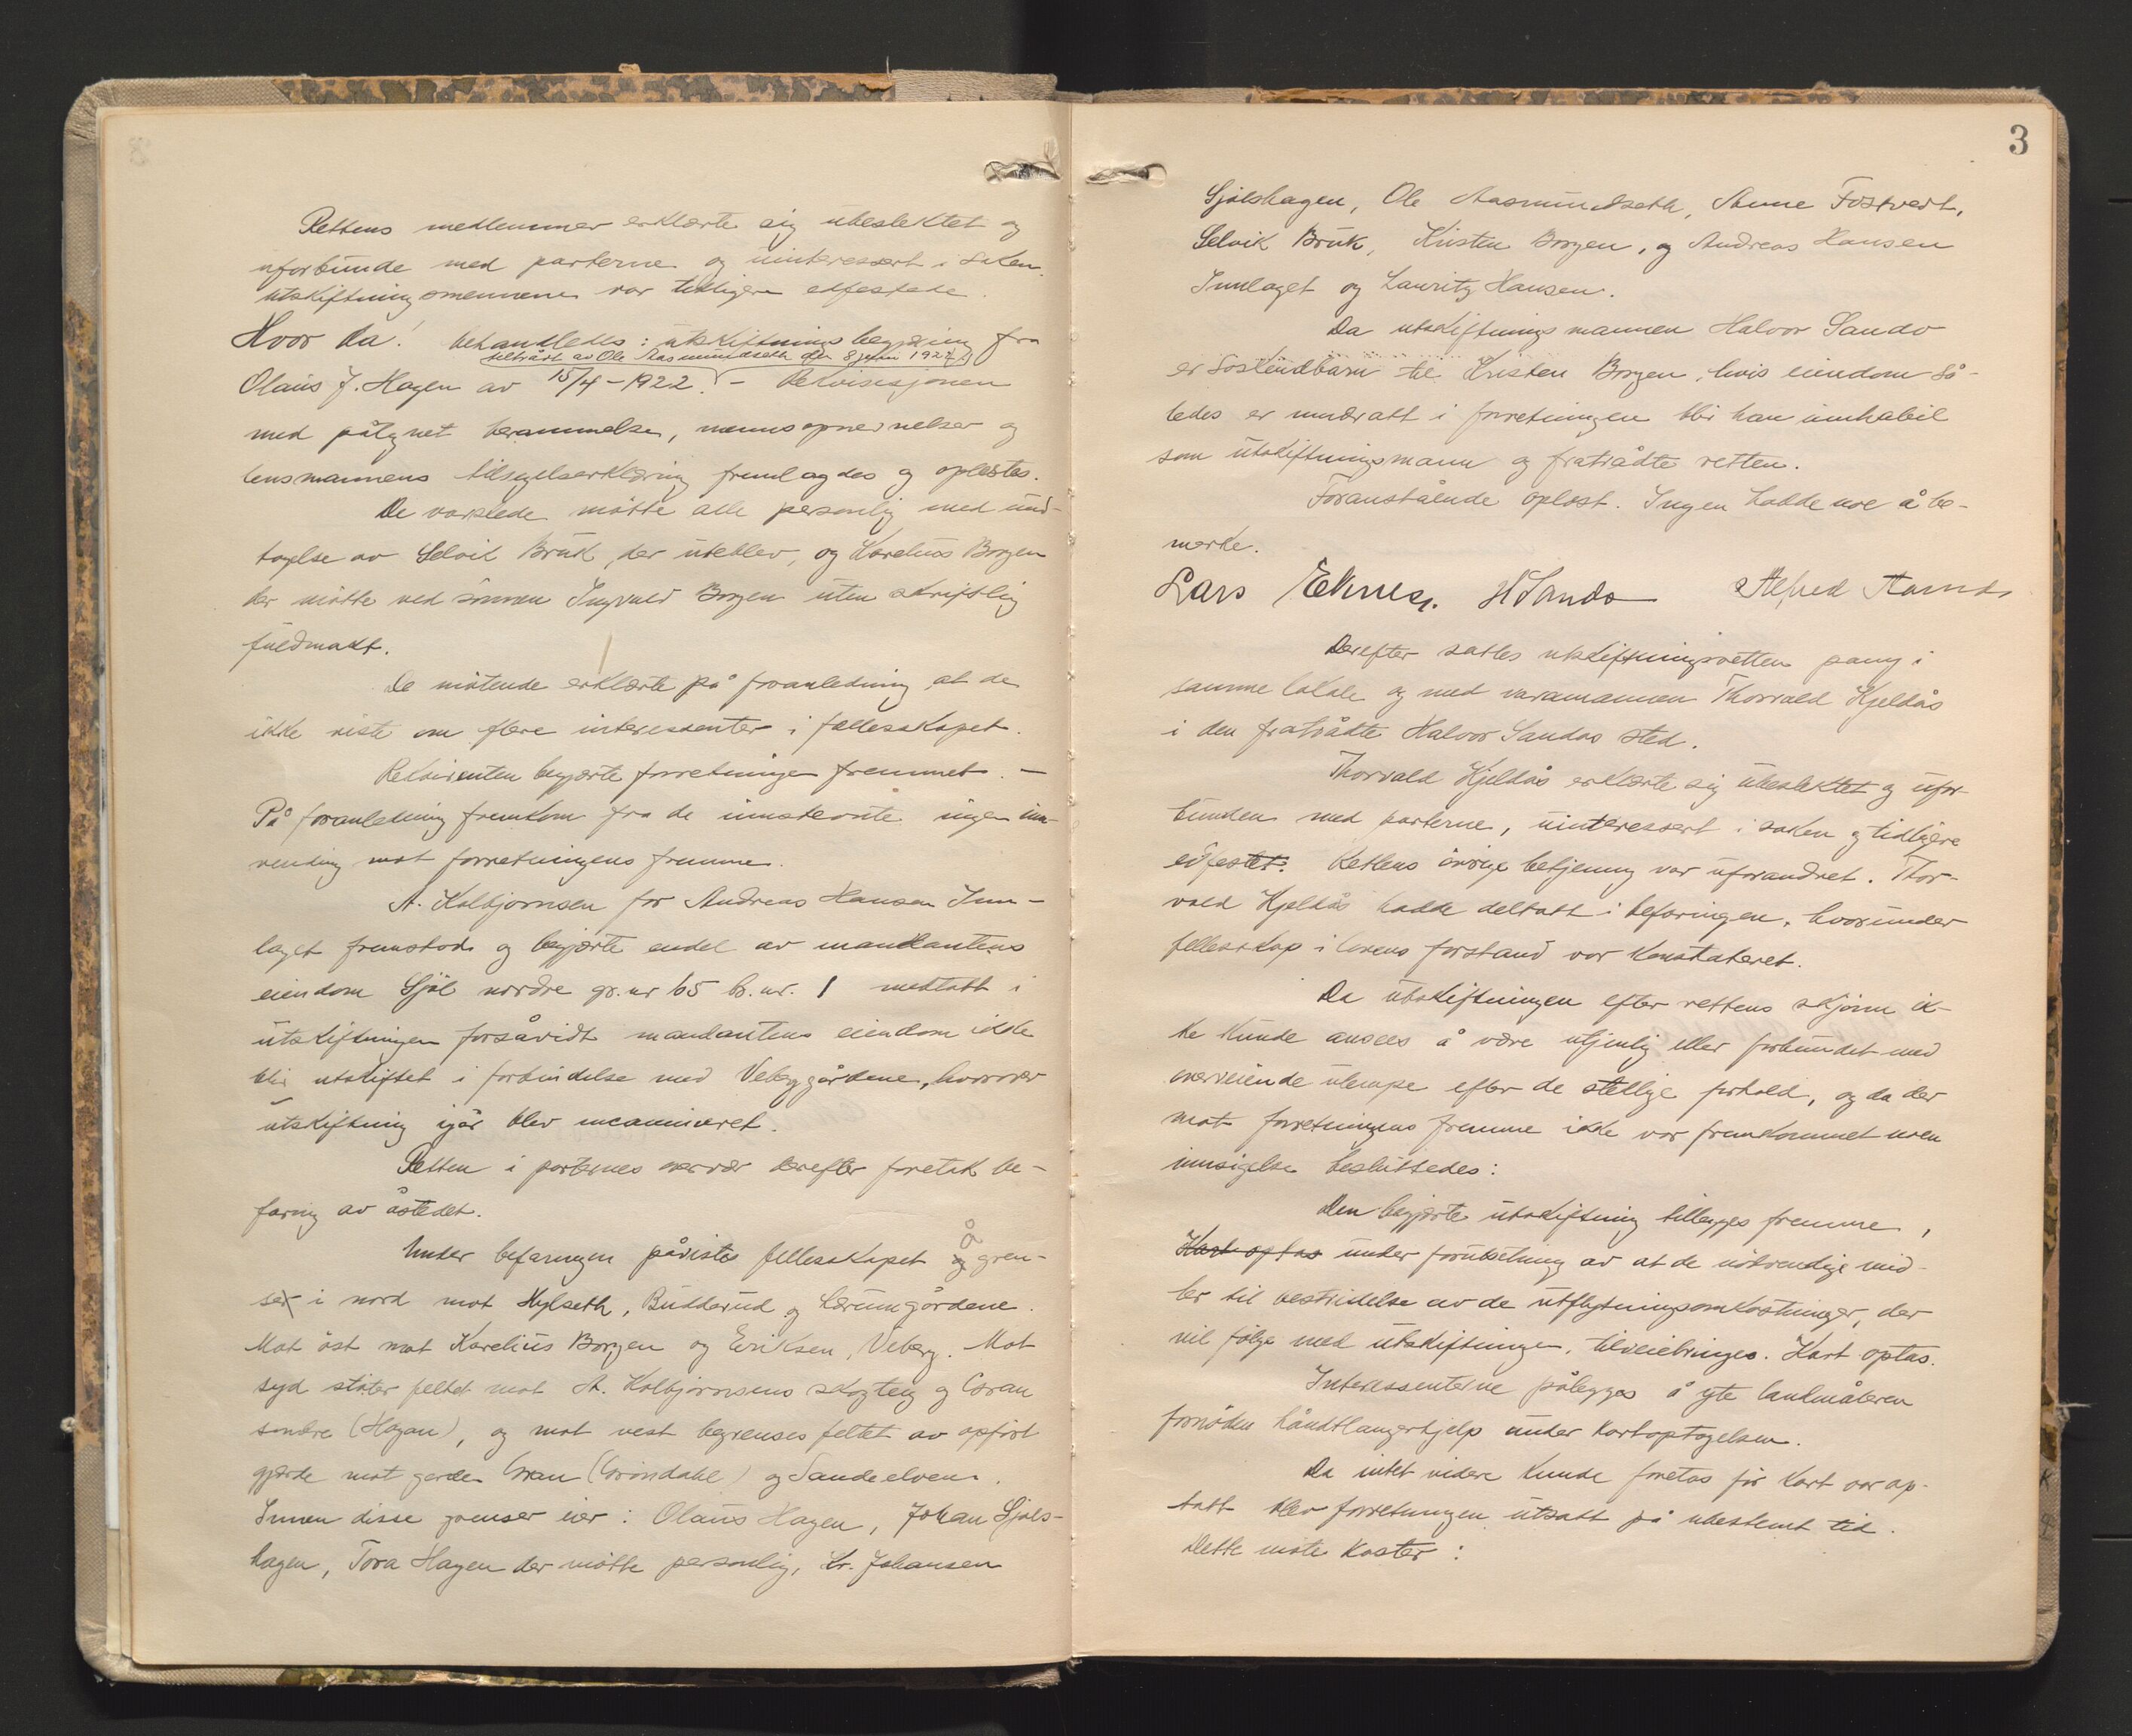 Rettens medlemmer erklærte sig ubeslektet og
uforbunde med parterne og uinteressert i saken.
Utskiftningsmennene var tidligere edfestede.
Hvor da! behandledes: utskiftningsbegjæring fra
tiltrådt av Ole Aasmundseth den 8 juni 1927
Olaus J. Hagen av 15/4-1922. - Rekvisisjonen
med påtegnet berammelse, mennsopnevnelser og
lensmannens tilsigelseserklæring fremlagdes og oplestes.
De varslede møtte alle personlig med und-
tagelse av Selvik Bruk, der uteblev, og Karelius Borgen
der møtte ved sønnen Ingvald Borgen uten skriftlig
fuldmakt.
De møtende erklærte på foranledning at de
ikke viste om flere interessenter i fellesskapet.
Rekvirenten begjærte forretningen fremmet. -
På foranledning fremkom fra de innstevnte ingen inn-
vending mot forretningens fremme.
A. Kolbjørnsen for Andreas Hansen Inn-
laget fremstod og begjærte endel av mandantens
eiendom Sjøl nordre gr.nr 65 br.nr. 1 medtatt i
utskiftningen forsåvidt mandantens eiendom ikke
blir utskiftet i forbindelse med Veberggårdene, hvorover
utskiftning igår blev incamineret.
Retten i parternes overvær derefter foretok be-
faring av åstedet.
Under befaringen påvistes fellesskapet og gren-
ser i nord mot Hylseth, Budderud og Lærumgårdene.
Mot øst mot Karelius Borgen og Eriksen, Veberg. Mot
syd støter feltet mot A. Kolbjørnsens skogteig og Gran
søndre (Hagan), og mot vest begrenses feltet av opført
gjærde mot garden Gran (Grøndahl) og Sandeelven.
Innen disse grenser eier: Olaus Hagen, Johan Sjøls-
hagen, Tora Hagen der møtte personlig, Kr. Johansen
3
Sjølshagen, Ole Aasmundseth, Anne Fostvedt,
Selvik Bruk, Kristen Borgen, og Andreas Hansen
Innlaget og Lauritz Hansen.
Da utskiftningsmannen Halvor Sando
er søskendbarn til Kristen Borgen, hvis eiendom så-
ledes er inndratt i forretningen blir han innhabil
som utskiftningsmann og fratrådte retten.
Foranstående oplæst. Ingen hadde noe å be-
merke.
Lars Eknes. H Sando Alfred
Derefter sattes utskiftningsretten påny i
samme lokale og med varamannen Thorvald Kjeldås
i den fratrådte Halvor Sandos sted.
Thorvald Kjeldås erklærte sig ubeslektet og ufor-
bunden med parterne, uinteressert i saken og tidligere
edfestet. Rettens øvrige betjening var uforandret. Thor-
vald Kjeldås hadde deltatt i befaringen, hvorunder
fellesskap i lovens forstand var konstateret.
Da utskiftningen efter rettens skjønn ik-
ke kunde ansees å være utjenlig eller forbundet med
overveiende ulempe efter de stedlige forhold, og da der
mot forretningens fremme ikke var fremkommet noen
innsigelse besluttedes:
Den begjærte utskiftning tillegges fremme,
Kart optas under forutsetning av at de nødvendige mid-
ler til bestridelse av de utflytningsomkostninger, der
vil følge med utskiftningen, tilveiebringes. Kart optas.
Interessenterne pålegges å yte landmåleren
fornøden håndtlangerhjelp under kartoptagelsen.
Da intet videre kunde foretas før kart var op-
tatt blev forretningen utsatt på ubestemt tid.
Dette møte koster: